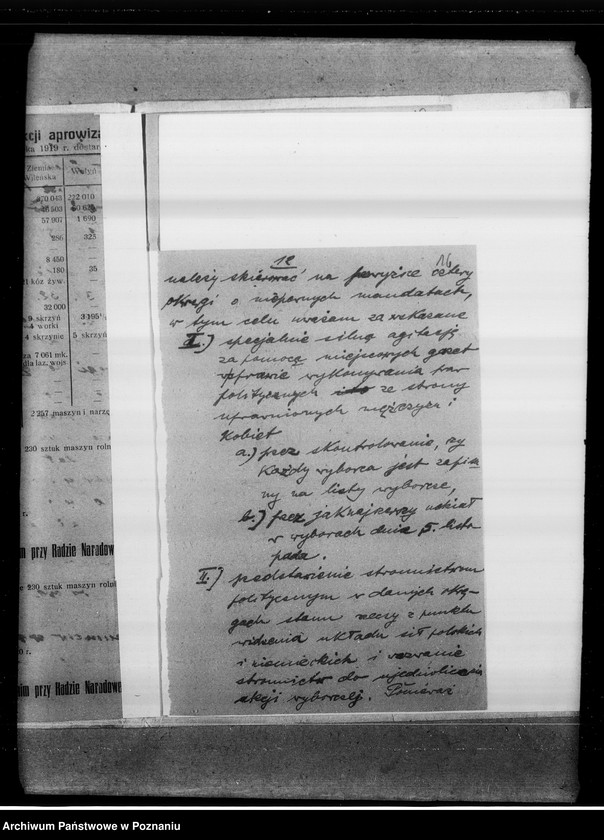 cji aprowiza
ka 1919 r. dostar
Ziemia
Wileńska
Wołyń
870 043
212 010
57 907
1 690
286
323
8 450
180
35
kóz żyw.
32 000
9 skrzyń
3 195
4 worki
4 skrzynie
5 skrzyń
za 7 061 mk.
dla laz. wojs
2 257 maszyn i narzę
230 sztuk maszyn roln
r.
m przy Radzie Narodow
e 230 sztuk maszyn roln
r.
im przy Radzie Narodowe
12
16
należy skierować na powyższe cztery
okręgi o niepewnych mandatach,
w tym celu uważam za wskazane
I.) specjalnie silną agitację
za pomocą miejscowych gazet
w sprawie wykonywania praw
politycznych ze strony
uprawnionych mężczyzn i
kobiet
a.) przez skontrolowanie, czy
każdy wyborca jest zapisa
ny na listy wyborcze,
b.) przez jaknajszerszy udział
w wyborach dnia 5. listo
pada.
II.) przedstawienie stronnictwom
politycznym w danych okrę-
gach stanu rzeczy z punktu
widzenia układu sił polskich
i niemieckich i wezwanie
stronnictw do ujednolicenia
akcji wyborczej. Ponieważ
Archiwum Państwowe w Poznaniu